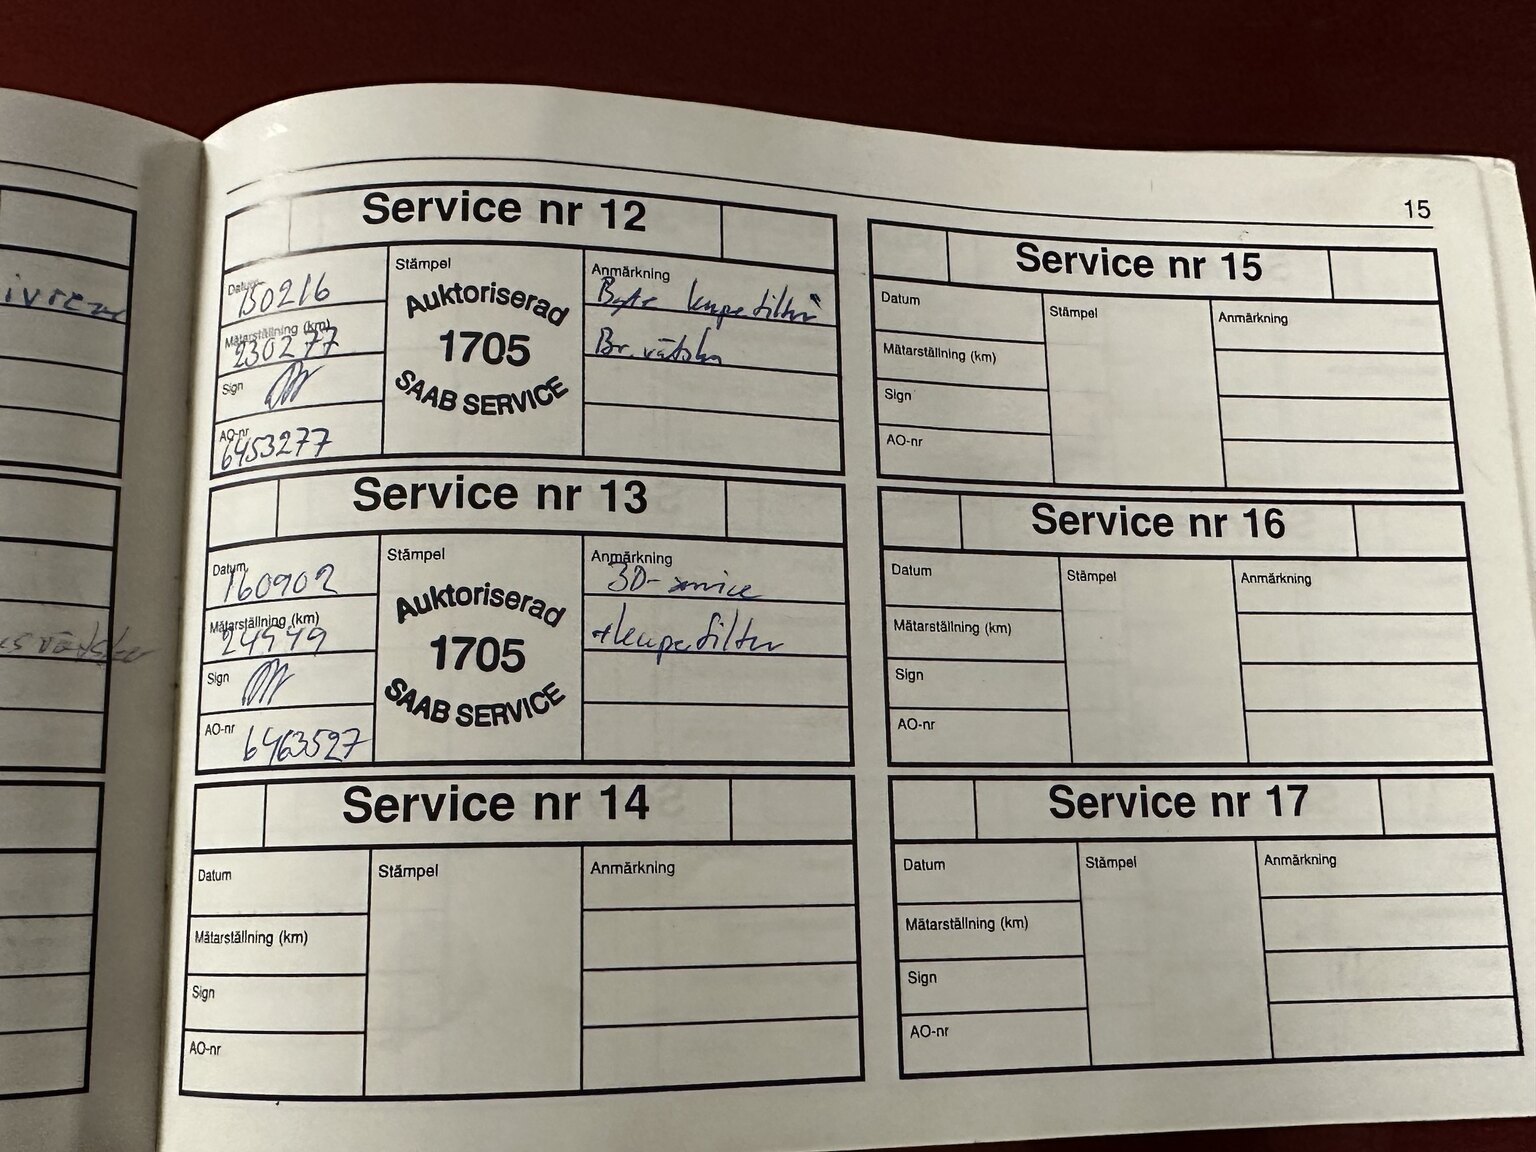 15
Service nr 12
Datum
150216
Mätarställning (km)
230277
Sign
AO-nr
6453277
Stämpel
Auktoriserad
1705
SAAB SERVICE
Anmärkning
Byte kupefilter
Br. vätska
Service nr 13
Datum
160902
Mätarställning (km)
Sign
AO-nr
6463527
Stämpel
Auktoriserad
1705
SAAB SERVICE
Anmärkning
30-service
+kupefilter
Service nr 14
Datum
Mätarställning (km)
Sign
AO-nr
Stämpel
Anmärkning
Service nr 15
Datum
Mätarställning (km)
Sign
AO-nr
Stämpel
Anmärkning
Service nr 16
Datum
Mätarställning (km)
Sign
AO-nr
Stämpel
Anmärkning
Service nr 17
Datum
Mätarställning (km)
Sign
AO-nr
Stämpel
Anmärkning